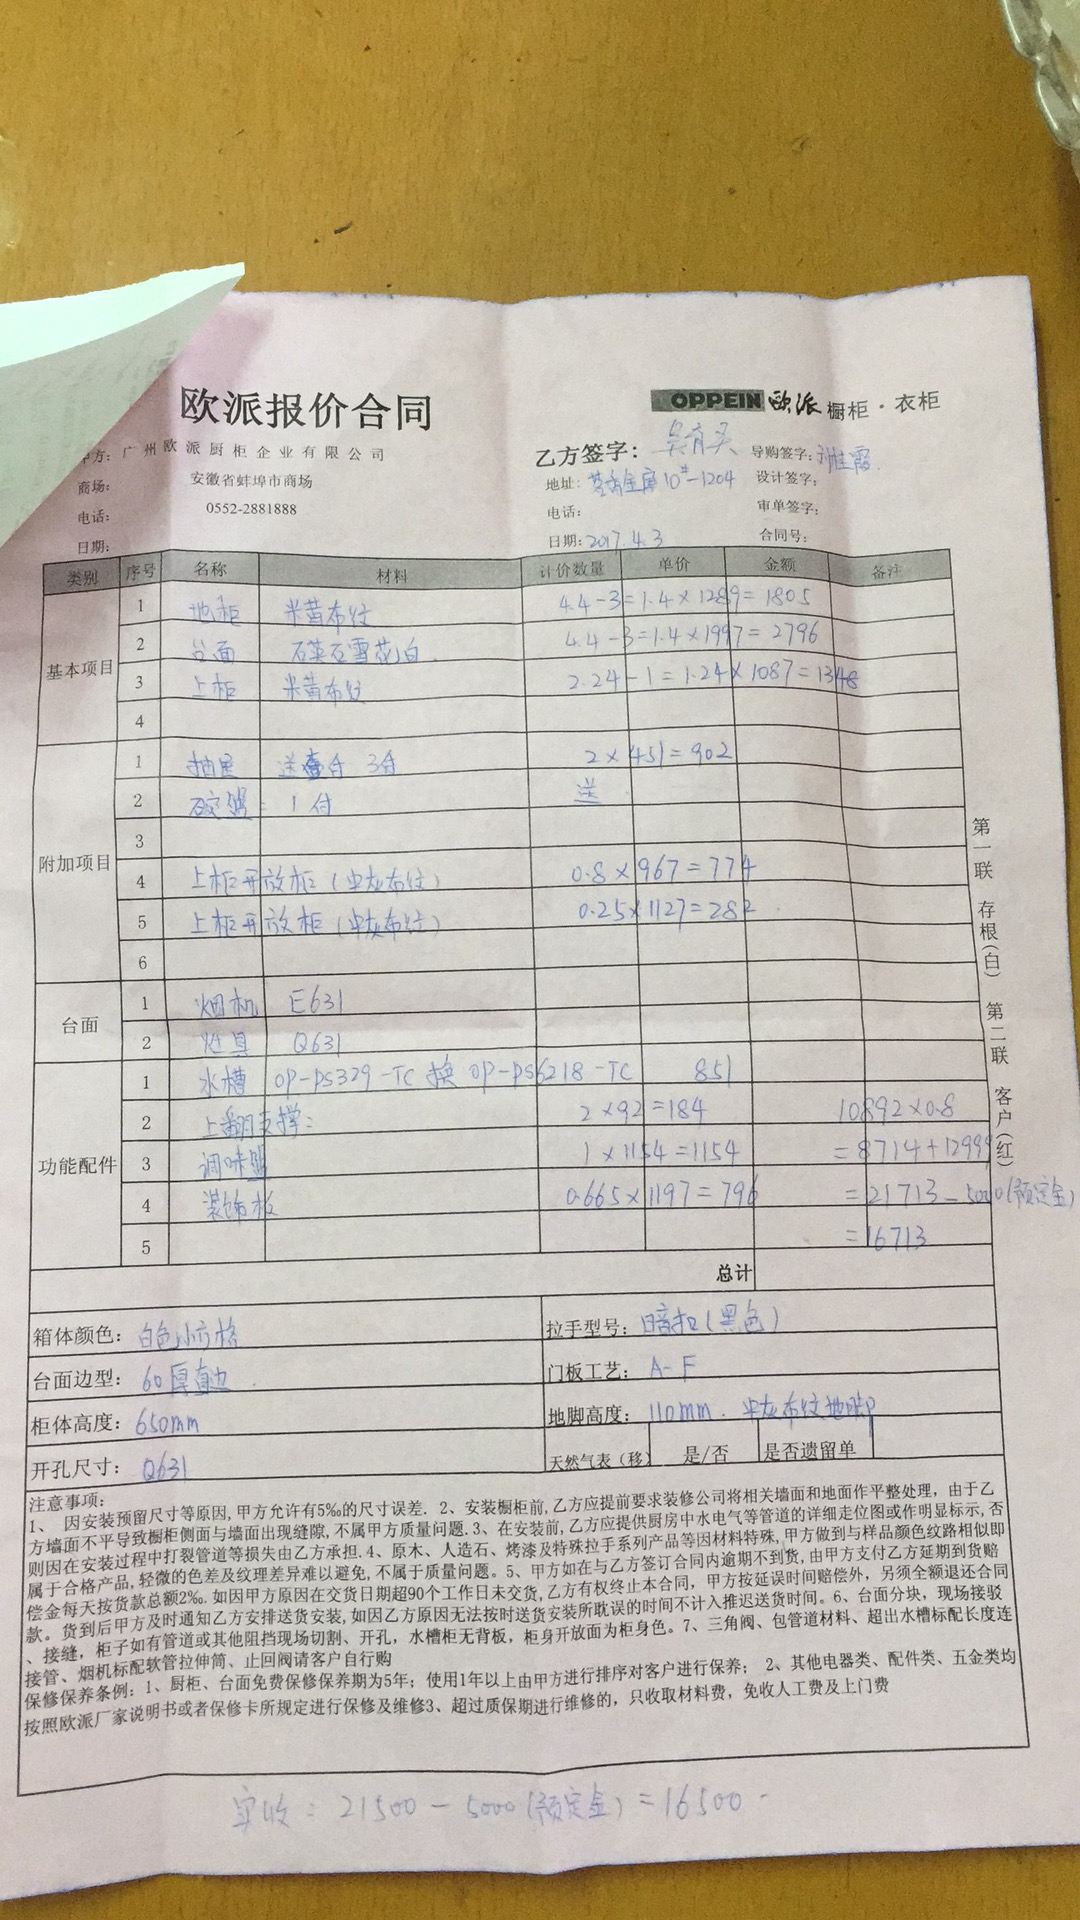 欧派报价合同
OPPEIN 欧派 橱柜·衣柜
甲方: 广州欧派厨柜企业有限公司
乙方签字: 导购签字:
商场: 安徽省蚌埠市商场
地址: 10#-1204 设计签字:
电话: 0552-2881888
电话: 审单签字:
日期:
日期: 2017.4.3 合同号:
类别 序号 名称 材料 计价数量 单价 金额 备注
基本项目
1 地柜 米黄布纹 4.4-3=1.4×1289=1805
2 台面 石英石雪花白 4.4-3=1.4×1997=2796
3 上柜 米黄布纹 2.24-1=1.24×1087=1348
4
附加项目
1 抽屉 送 3付 2×451=902
2 碗篮: 1付 送
3
4 上柜开放柜(灰布纹) 0.8×967=774
5 上柜开放柜(灰布纹) 0.25×1127=282
6
台面
1 烟机 E631
2 灶具 Q631
功能配件
1 水槽 OP-PS329-TC 换 OP-PS6218-TC 851
2 上翻支撑: 2×92=184 10892×0.8
3 调味篮 1×1154=1154 =8714+12999
4 装饰板 0.665×1197=796 =21713-5000(预定金)
5 =16713
总计
箱体颜色: 白色小方格 拉手型号: 暗扣(黑色)
台面边型: 60厚直边 门板工艺: A-F
柜体高度: 650mm 地脚高度: 110mm. 灰布纹地脚
开孔尺寸: Q631 天然气表(移) 是/否 是否遗留单
第一联 存根(白) 第二联 客户(红)
注意事项:
1、 因安装预留尺寸等原因,甲方允许有5‰的尺寸误差. 2、安装橱柜前,乙方应提前要求装修公司将相关墙面和地面作平整处理, 由于乙
方墙面不平导致橱柜侧面与墙面出现缝隙,不属甲方质量问题.3、在安装前,乙方应提供厨房中水电气等管道的详细走位图或作明显标示,否
则因在安装过程中打裂管道等损失由乙方承担.4、原木、人造石、烤漆及特殊拉手系列产品等因材料特殊,甲方做到与样品颜色纹路相似即
属于合格产品,轻微的色差及纹理差异难以避免,不属于质量问题。5、甲方如在与乙方签订合同内逾期不到货,由甲方支付乙方延期到货赔
偿金每天按货款总额2‰.如因甲方原因在交货日期超90个工作日未交货,乙方有权终止本合同, 甲方按延误时间赔偿外, 另须全额退还合同
款。货到后甲方及时通知乙方安排送货安装,如因乙方原因无法按时送货安装所耽误的时间不计入推迟送货时间。6、台面分块, 现场接驳
、接缝, 柜子如有管道或其他阻挡现场切割、开孔, 水槽柜无背板, 柜身开放面为柜身色。7、三角阀、包管道材料、超出水槽标配长度连
接管、烟机标配软管拉伸筒、止回阀请客户自行购
保修保养条例: 1、厨柜、台面免费保修保养期为5年; 使用1年以上由甲方进行排序对客户进行保养; 2、其他电器类、配件类、五金类均
按照欧派厂家说明书或者保修卡所规定进行保修及维修3、超过质保期进行维修的, 只收取材料费, 免收人工费及上门费
实收: 21500-5000(预定金)=16500